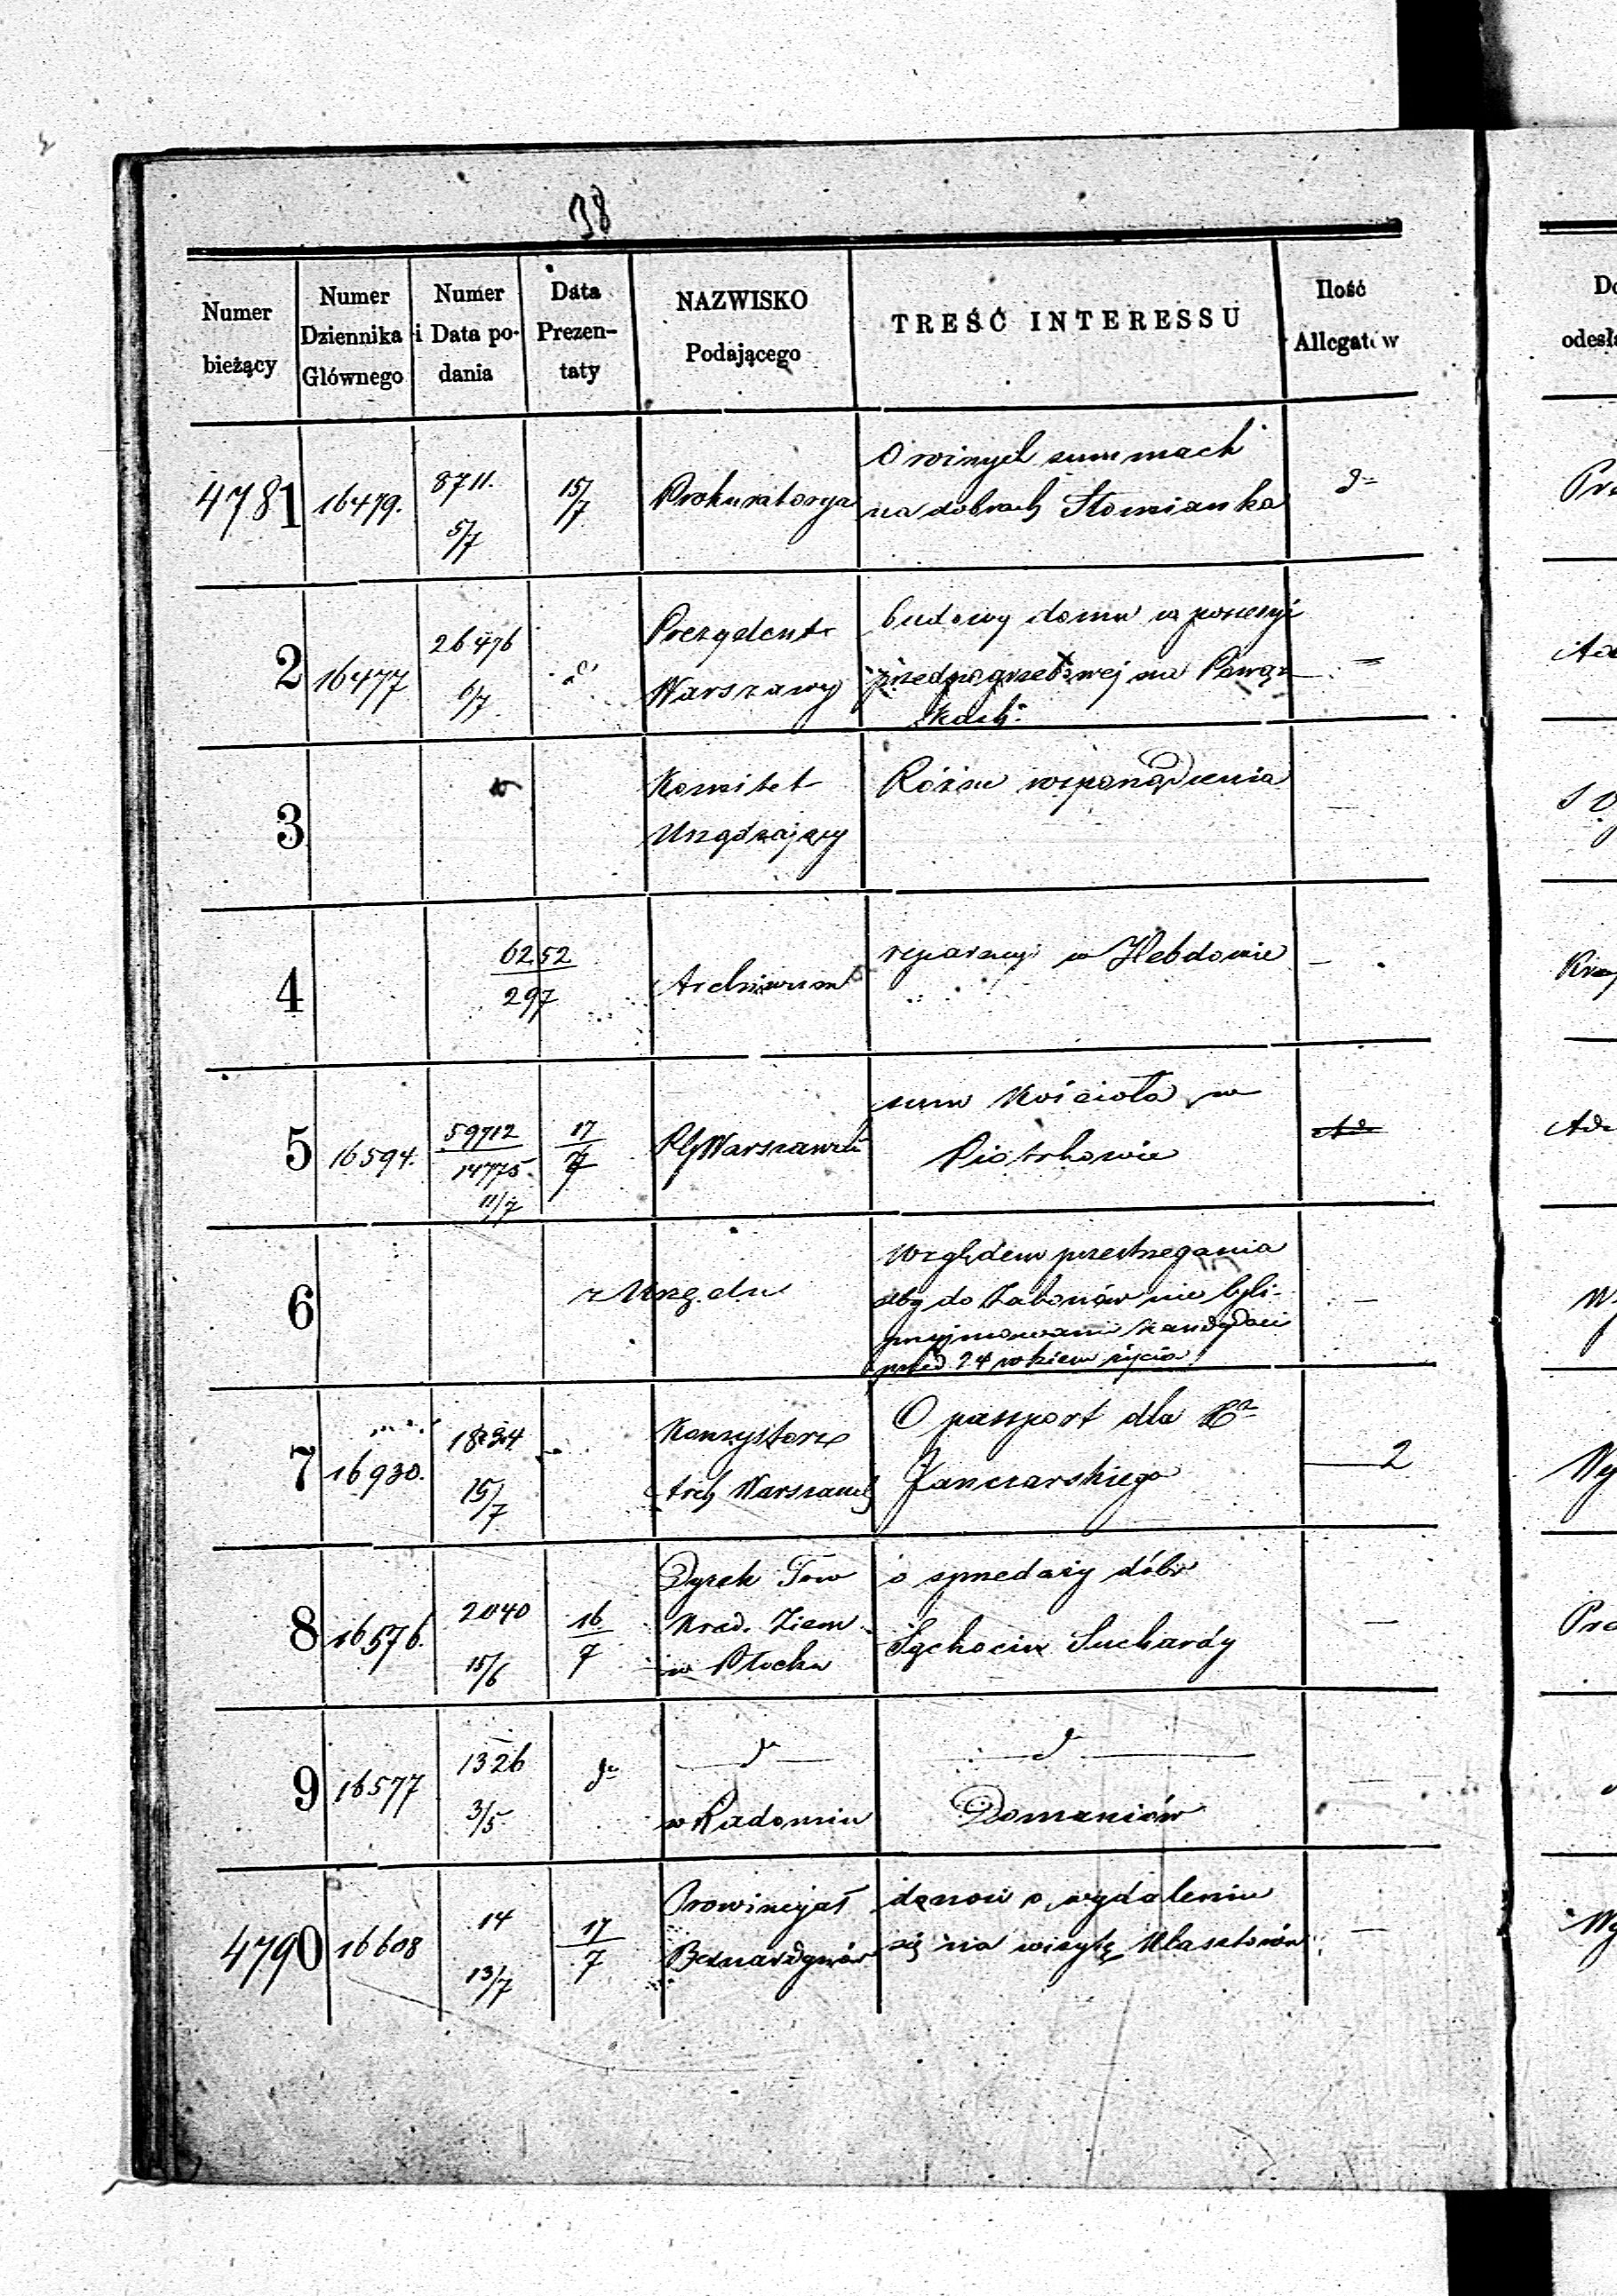 38
Numer bieżący
Numer Dziennika Głównego
Numer i Data podania
Data Prezentaty
NAZWISKO Podającego
TREŚĆ INTERESSU
Ilość Allegatów
4781 16479. 8711. 5/7 15/7 Prokuratorya
O winych summach
na dobrach Słomianka
2 16477 26476 6/7
Prezydent
Warszawy
budowy domu w possessyi
przedpogrzebowej na Powąz
kach.
3
Komitet
Urządzający
Różne rozporządzenia
4 6252 297 Archiwum
reparacyi w Hebdowie
5 16594. 59712 14775 11/7 17/7
RG Warszawski
sum Kościoła w
Piotrkowie
6 z Urzędu
Względem przestrzegania
aby do Zakonów nie byli
przyjmowani kandydaci
przed 24 rokiem życia
7 16930. 15/7
Konsystorz
Arch Warszawski
O passport dla
Janczarskiego
2
8 16576. 2040 15/6 16/7
Dyrek Tow
Kred. Ziem
w Płocku
o sprzedaży dóbr
Sąchocin Suchardy
9 16577 1326 3/5 do
do
w Radomiu
do
Domaniów
4790 16608 14 13/7 17/7
Prowincyał
Bernardynów
donosi o wydaleniu
się na wizytę Klasztorów